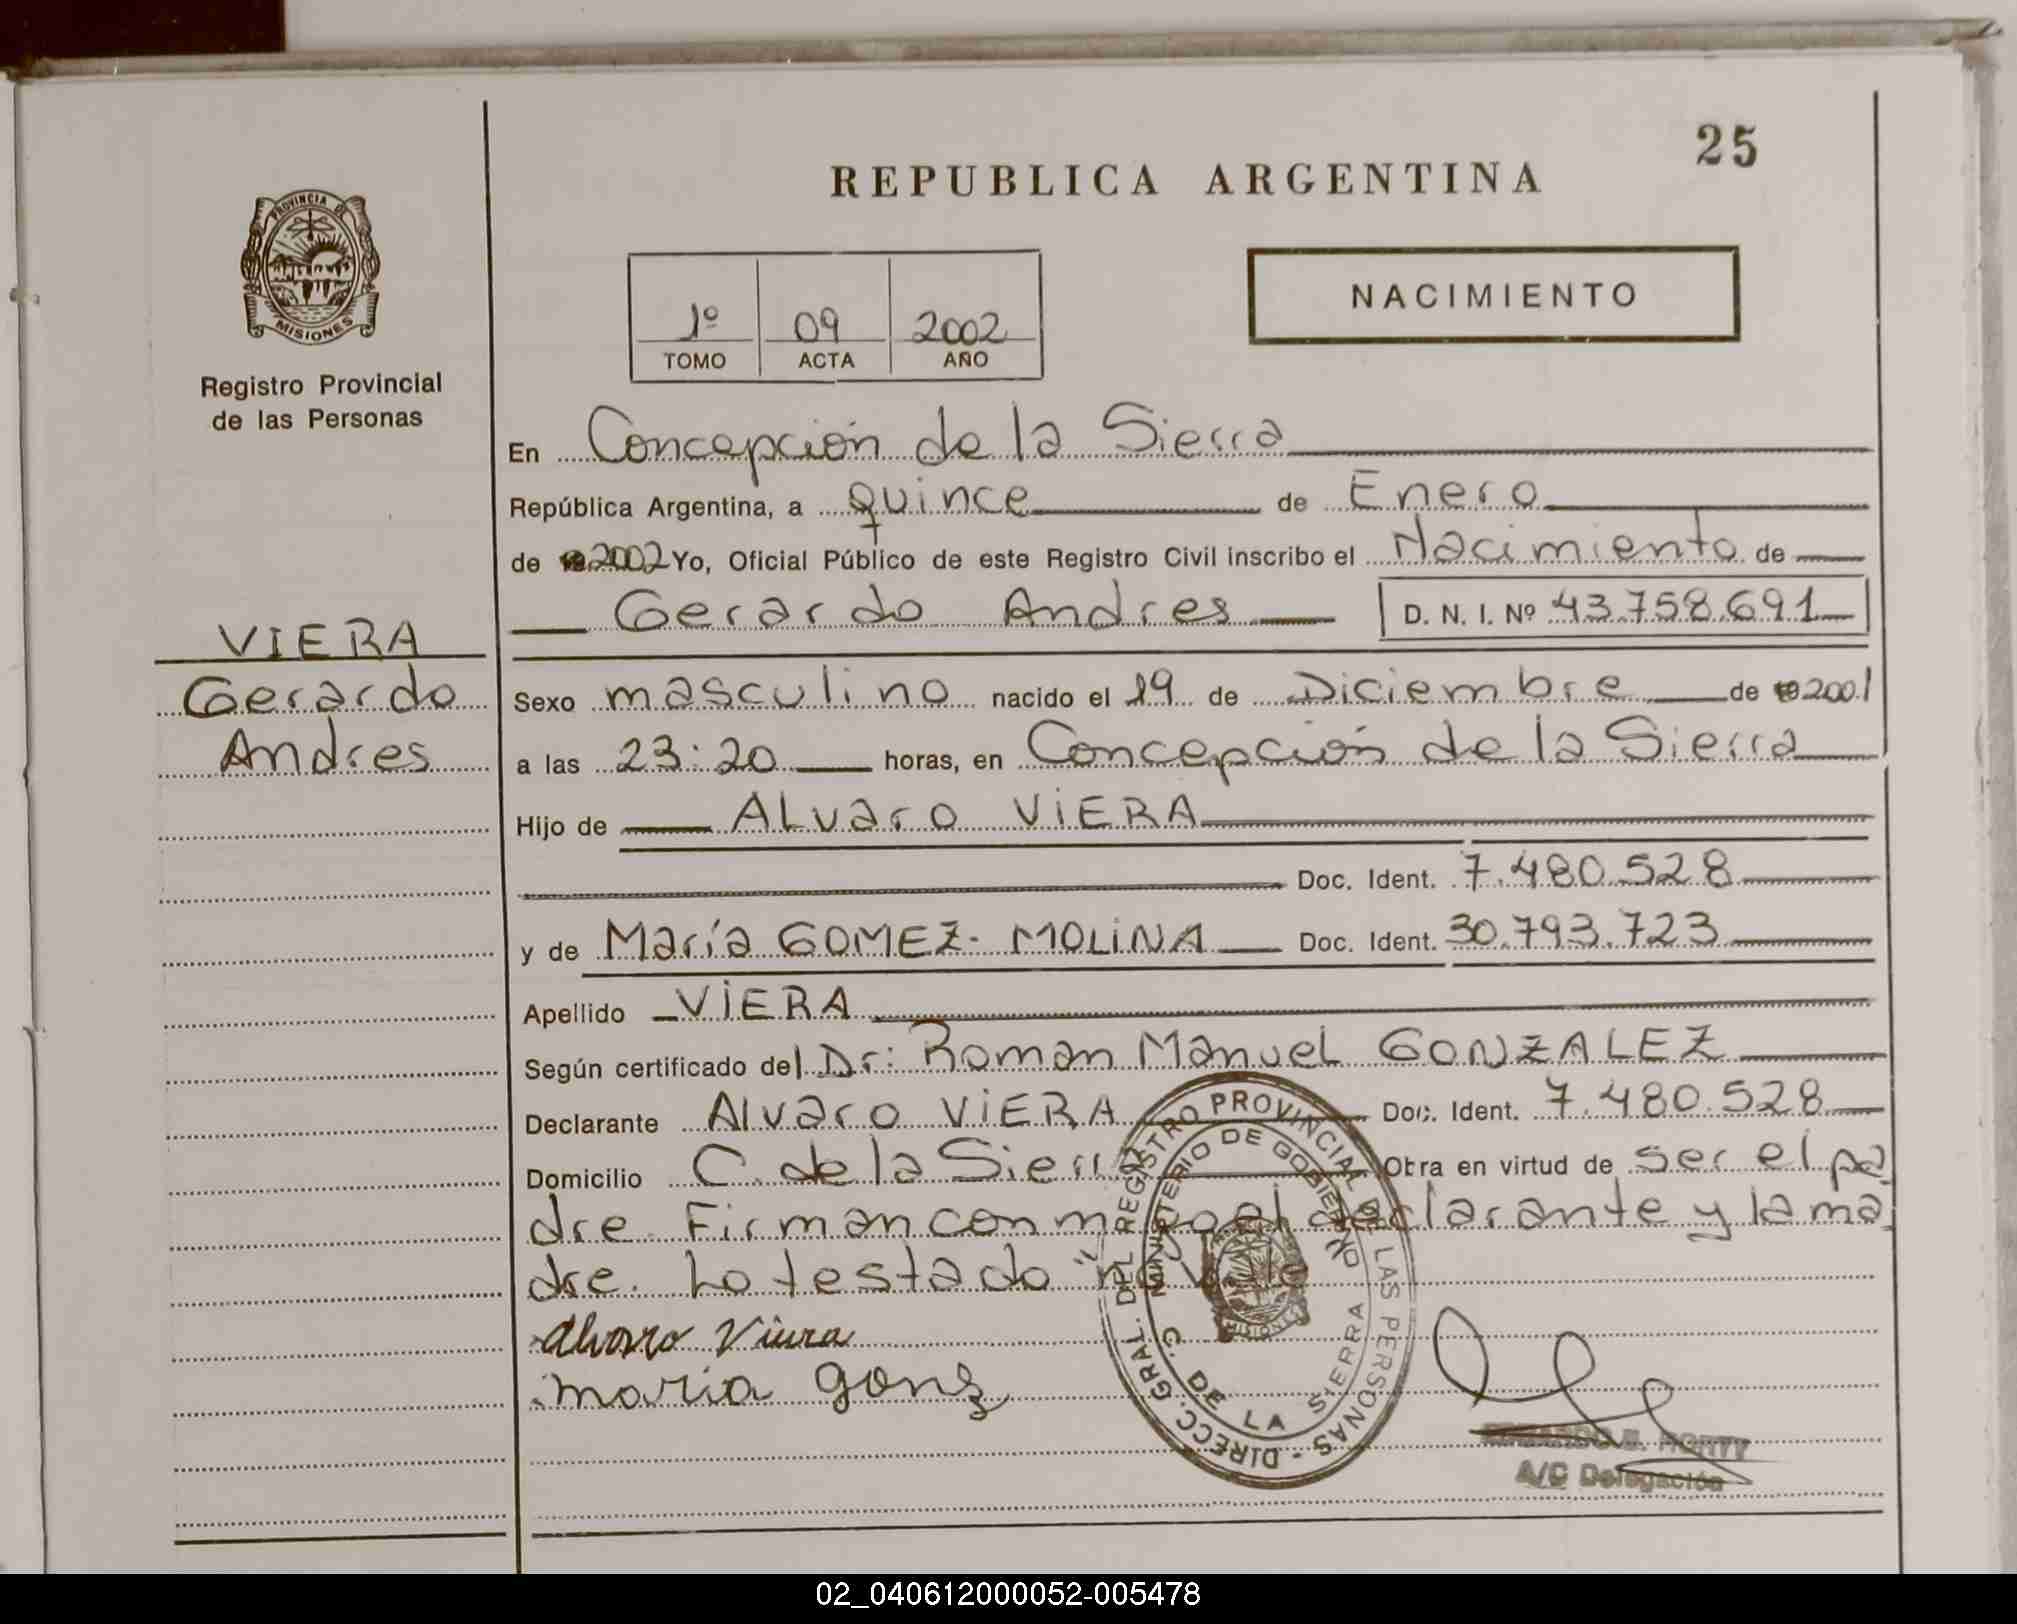 25
REPUBLICA ARGENTINA
PROVINCIA DE
MISIONES
Registro Provincial
de las Personas
1º 09 2002
TOMO ACTA AÑO
NACIMIENTO
En Concepción de la Sierra
República Argentina, a quince de Enero
de 2002 Yo, Oficial Público de este Registro Civil inscribo el Nacimiento de
Gerardo Andres D. N. I. Nº 43.758.691
VIERA
Gerardo
Andres
Sexo masculino nacido el 19 de Diciembre de 2001
a las 23:20 horas, en Concepción de la Sierra
Hijo de ALvaro ViERA
Doc. Ident. 7.480.528
y de María GOMEZ- MOLiNA Doc. Ident. 30.793.723
Apellido ViERA
Según certificado del Dr: Roman ManueL GONZALEZ
Declarante Alvaro ViERA Doc. Ident. 7.480.528
Domicilio C. de la Sierra Obra en virtud de ser el pa
dre. Firman con migo el declarante y la ma
dre. Lo testado "no vale
Alvaro Viera
maria gomz
DIRECC. GRAL. DEL REGISTRO PROVINCIAL DE LAS PERSONAS -
MINISTERIO DE GOBIERNO
C. DE LA SIERRA
MISIONES
A/C Delegación
02_040612000052-005478